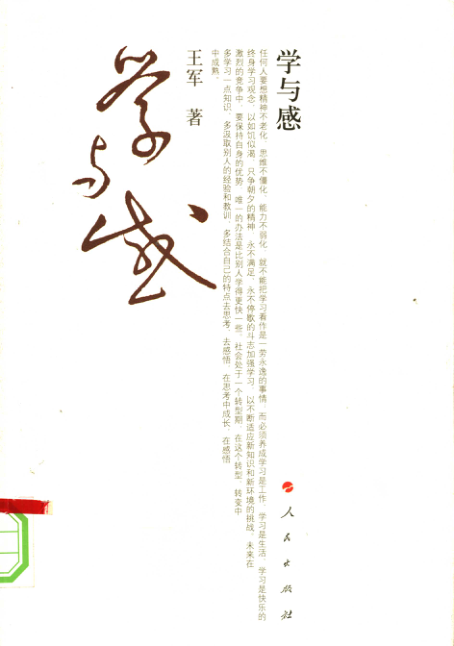 学与感
任何人要想精神不老化、思维不僵化、能力不弱化，就不能把学习看作是一劳永逸的事情，而必须养成学习是工作、学习是生活、学习是快乐的
终身学习观念，以如饥似渴、只争朝夕的精神，永不满足、永不停歇的斗志加强学习，以不断适应新知识和新环境的挑战。未来在
激烈的竞争中，要保持自身的优势，唯一的办法是比别人学得更快一些。社会处于一个转型期，在这个转型、转变中
多学习一点知识，多汲取别人的经验和教训，多结合自己的特点去思考、去感悟，在思考中成长，在感悟
中成熟。
王军 著
学与感
人民出版社